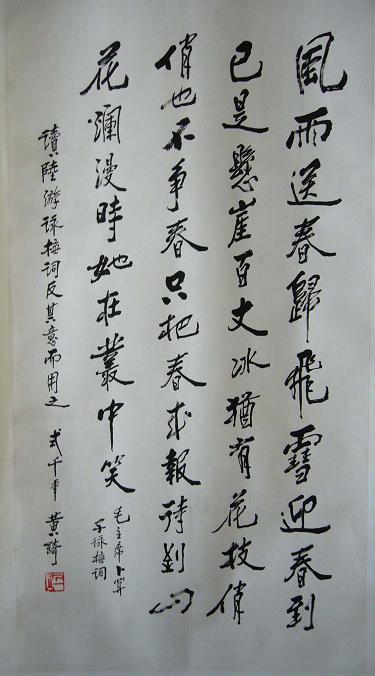 風雨送春歸飛雪迎春到
已是懸崖百丈冰猶有花枝俏
俏也不争春只把春來報待到山
花瀾漫時她在叢中笑
毛主席卜算
子詠梅詞
讀陸游詠梅詞反其意而用之 弍千年 黄綺